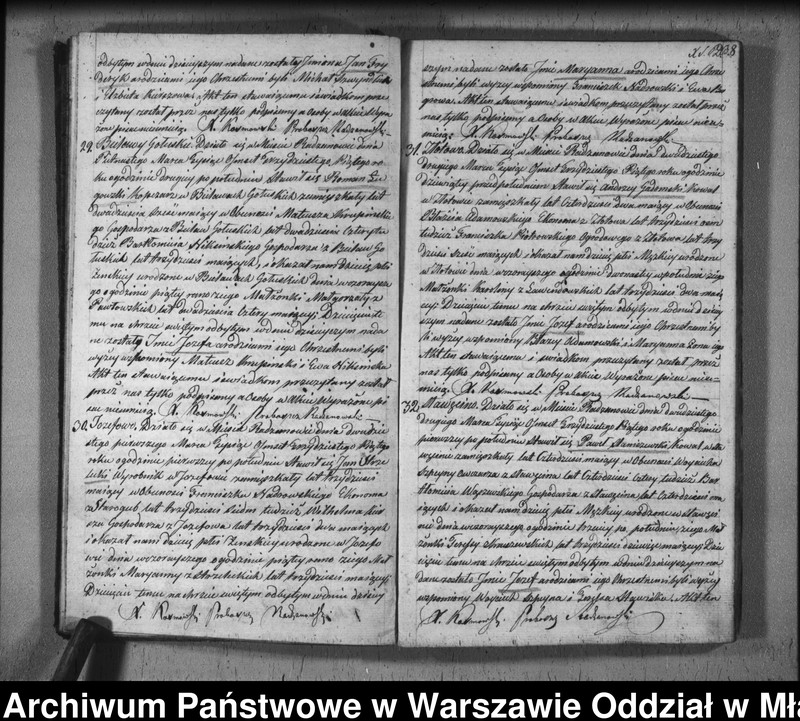 odbytym w dniu dzisieyszym nadane zostały Imiona Jan Fry
deryk a rodzicami iego Chrzestnemi byli Michał
i Elzbieta Akt ten stawaiącemu i świadkom prze
czytany został przez nas tylko podpisany a Osoby w Akcie wyra
żone pisać nieumieią. X. Rosmowski Proboszcz Radzanowski
29. Bieławy Gołuskie. Działo się w Mieście Radzanowie dnia
Piętnastego Marca Tysiąc Ośmset Trzydziestego Piątego ro
ku o godzinie drugiey po południu Stawił się Roman
Koparz w Bieławach Gołuskich zamieszkały lat
dwadzieścia trzy maiący w Obecności Mateusza Krupińskie
go Gospodarza z Bieław Gołuskich lat dwadzieścia Cztery tu
dzież Bartłomieia Gospodarza z Bieław Go
łuskich lat trzydzieści maiących, i okazał nam Dziecię płci
Żenskiey urodzone w Bieławach Gołuskich dnia wczorayszе
go o godzinie piątey rano z iego Małżonki Małgorzaty z
Pawłowskich lat dwadzieścia Cztery maiącey Dziecięciu te
mu na chrzcie świętym odbytym w dniu dzisieyszym nada
ne zostało Imie Józefa a rodzicami iego Chrzestnemi byli
wyżey wspomniony Mateusz Krupiński i Ewa
Akt ten stawaiącemu i świadkom przeczytany został
przez nas tylko podpisany a Osoby w Akcie wyrażone pi
sać nieumieią. X. Rosmowski Proboszcz Radzanowski
30. Józefowo. Działo się w Mieście Radzanowie dnia dwudzie
stego pierwszego Marca Tysiąc Ośmset Trzydziestego Piątego
roku o godzinie pierwszey po południu Stawił się Jan
Wyrobnik w Józefowie zamieszkały lat trzydzieści
maiący w Obecności Franciszka Nadrowskiego Ekonoma
lat trzydzieści siedm tudzież Wilhelma
Gospodarza z Józefowa lat trzydzieści dwa maiących
i okazał nam Dziecię płci Żenskiey urodzone w Józefo
wie dnia wczorayszego o godzinie piątey rano z iego Mał
żonki Maryanny lat trzydzieści maiącey
Dziecięciu temu na chrzcie świętym odbytym w dniu dzisiey
X. Rosmowski Proboszcz Radzanowski
szym nadane zostało Imie Maryanna a rodzicami iego Chrze
stnemi byli wyżey wspomniony Franciszek Nadrowski i Ewa
Akt ten stawaiącemu i świadkom przeczytany został przez
nas tylko podpisany a Osoby w Akcie wyrażone pisać nieu
mieią. X. Rosmowski Proboszcz Radzanowski
31. Zlotowo. Działo się w Mieście Radzanowie dnia dwudziestego
drugiego Marca Tysiąc Ośmset Trzydziestego Piątego roku o godzinie
dziewiątey przed południem Stawił się Andrzey Gadomski Kowal
w Zlotowie zamieszkały lat Czterdzieści dwa maiący w Obecności
Błażeia Adamowskiego Ekonoma z Zlotowa lat trzydzieści
tudzież Franciszka Piotrowskiego Ogrodowego z Zlotowa lat trzy
dzieści sześć maiących i okazał nam dziecię płci Męzkiey urodzone
w Zlotowie dnia wczorayszego o godzinie dwunastey w południe z iego
Małżonki Karoliny z lat trzydzieści dwa ma
iącey Dziecięciu temu na chrzcie świętym odbytym w dniu dzisiey
szym nadane zostało Imie Józef a rodzicami iego Chrzestnemi by
li wyżey wspomniony Błażey Adamowski i Maryanna Żona iego
Akt ten stawaiącemu i świadkom przeczytany został przez
nas tylko podpisany a Osoby w Akcie wyrażone pisać nieu
mieią. X. Rosmowski Proboszcz Radzanowski
32. Sławęcino. Działo się w Mieście Radzanowie dnia dwudziestego
drugiego Marca Tysiąc Ośmset Trzydziestego Piątego roku o godzinie
pierwszey po południu Stawił się Paweł Staniszewski Kowal w Sła
węcinie zamieszkały lat Czterdzieści maiący w Obecności Woyciecha
Szpeyny Owczarza z Sławęcina lat Czterdzieści Cztery tudzież Bar
tłomieia Gospodarza z Sławęcina lat Czterdzieści ma
iących i okazał nam dziecię płci Męzkiey urodzone w Sławęci
nie dnia wczorayszego o godzinie trzeciey po południu z iego Mał
żonki Teresy lat trzydzieści dziewięć maiącey Dzie
cięciu temu na chrzcie świętym odbytym w dniu dzisieyszym na
dane zostało Imie Józef a rodzicami iego Chrzestnemi byli wyżey
wspomniony Woyciech Szpeyna i Akt ten
X. Rosmowski Proboszcz Radzanowski
Archiwum Państwowe w Warszawie Oddział w Mła